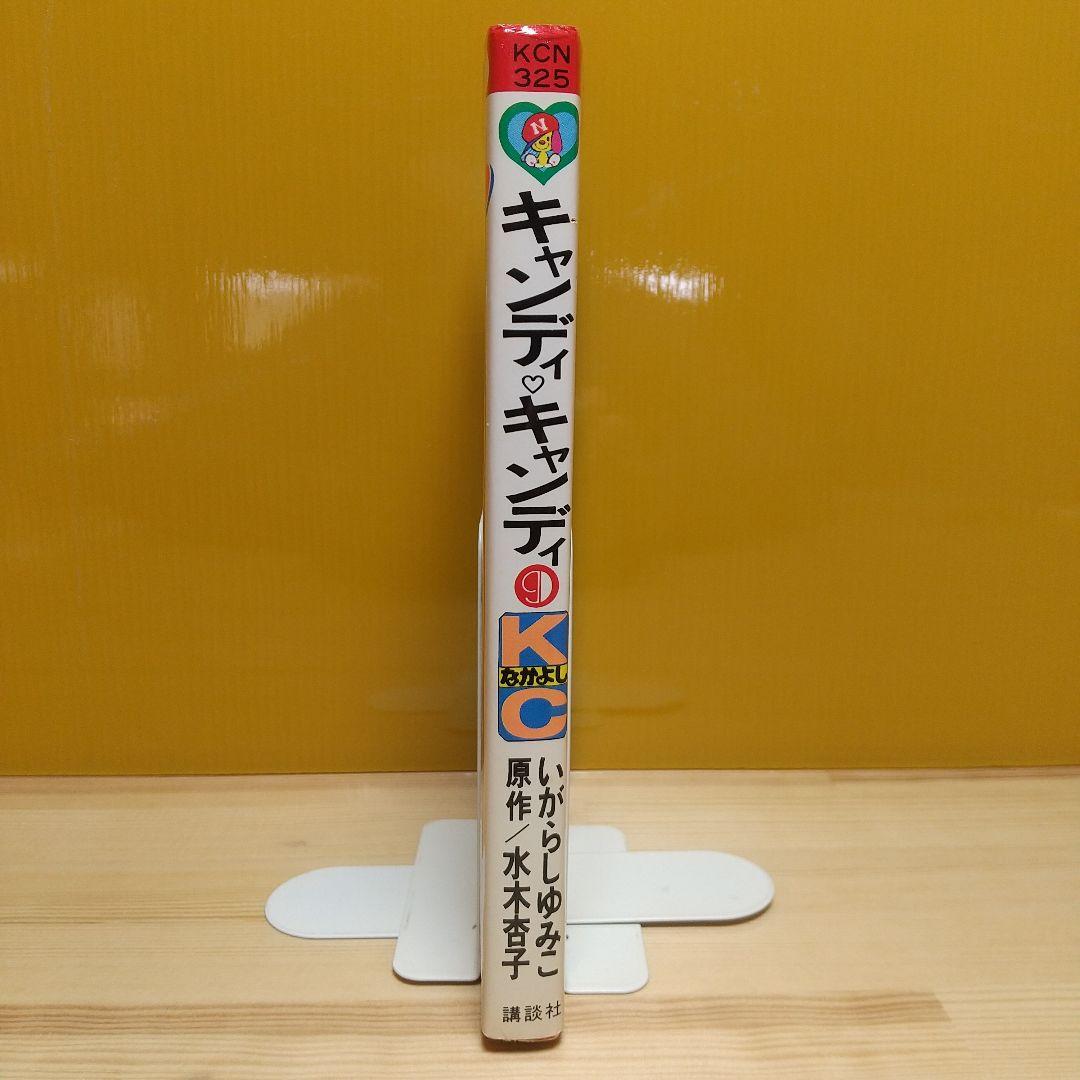 KCN
325
N
キャンディ♡キャンディ
9
K
なかよし
C
いがらしゆみこ
原作/水木杏子
講談社